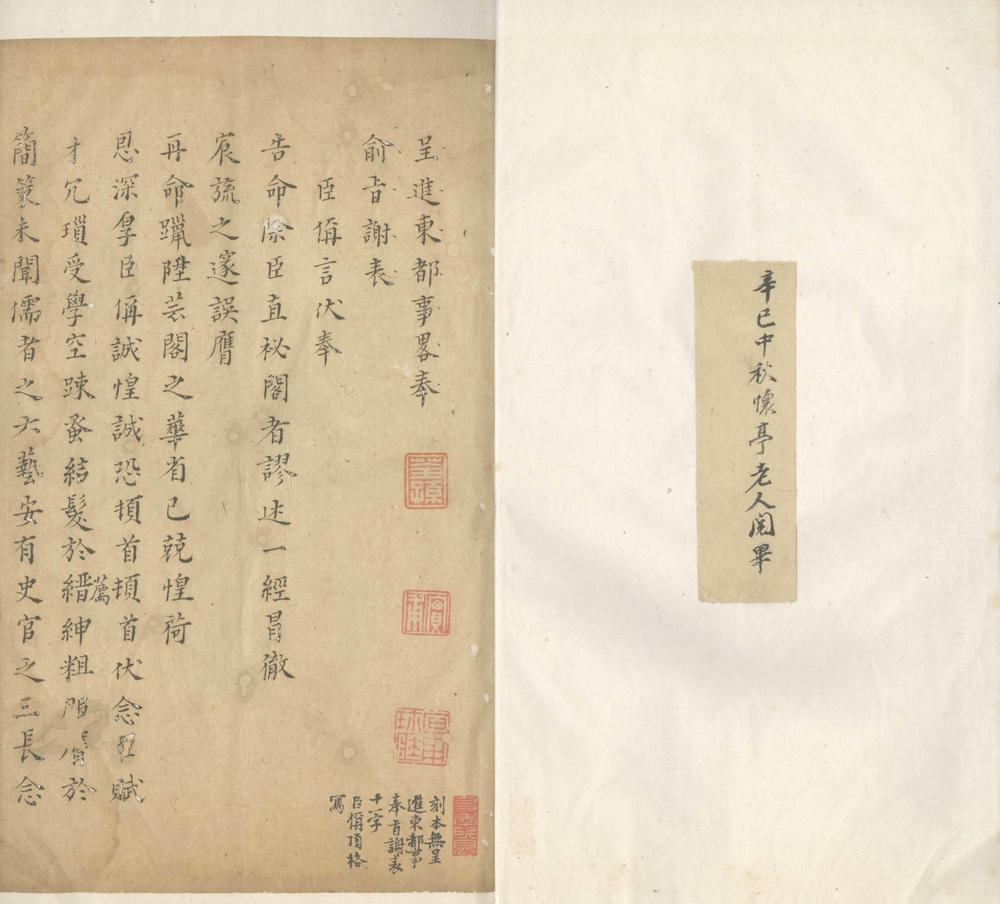 辛巳中秋懷亭老人閱畢
呈進東都事畧奉
俞旨謝表
臣偁言伏奉
告命除臣直祕閣者謬述一經冒徹
扆旒之邃誤膺
再命躐陞芸閣之華省已兢惶荷
恩深厚臣偁誠惶誠恐頓首頓首伏念臣賦
才冗瑣受學空踈蚤結髮於縉紳粗
薦
於
簡策未聞儒者之六藝安有史官之三長念
刻本無呈
進東都事
奉旨謝表
十一字
臣偁頂格
寫